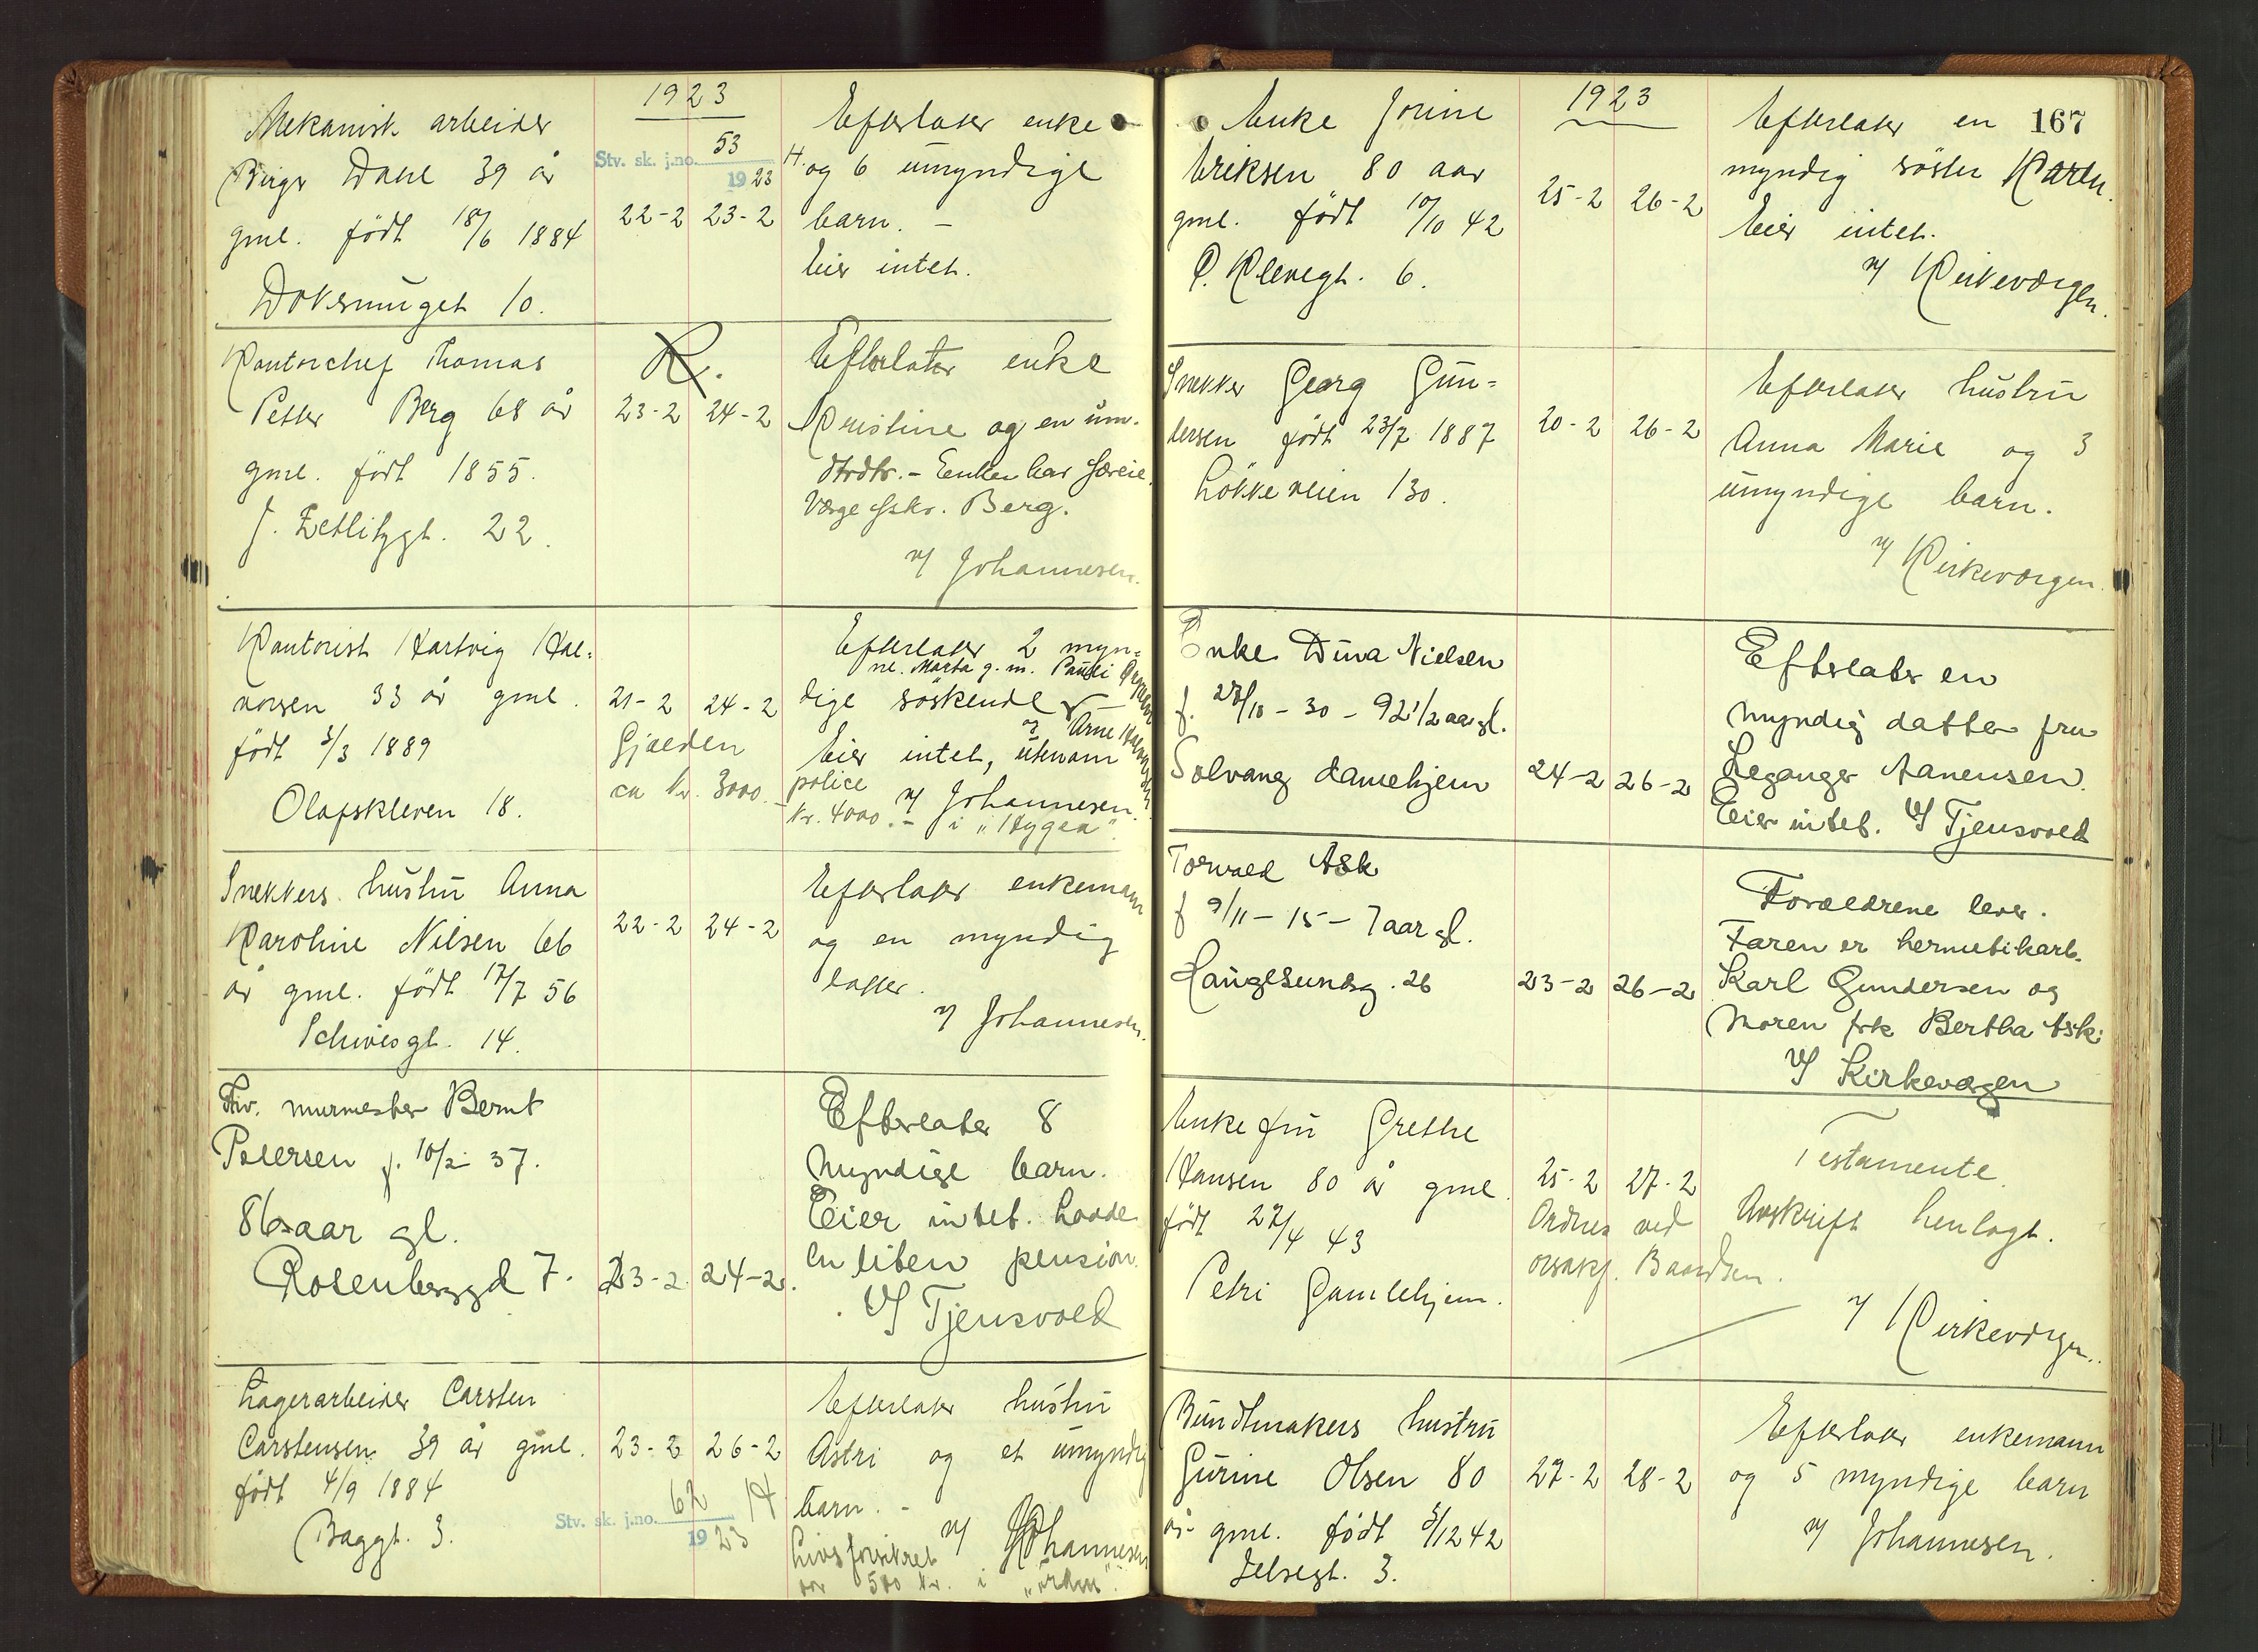 1923
Mekanisk arbeider
Birger Dahl 39 år
gml. født 18/6 1884
Doksmuget 10.
Stv. sk. j.no. 53
1923
22-2 23-2
Efterlater enke
H. og 6 umyndige
barn. -
Eier intet.
Kontorchef Thomas
Petter Berg 68 år
gml. født 1855.
J. Zetlitzgt. 22.
R.
23-2 24-2
Efterlater enke
Kristine og en um.
dtrdtr. - Enken har særeie.
Værge Berg.
v/ Johannesen.
Kontorist Hartvig Hal-
vorsen 33 år gml.
født 3/3 1889
Olafskleven 18.
21-2 24-2
Gjælden
ca kr. 3000.-
Efterlater 2 myn-
nl. Marta g. m. Pauli
dige søskende
og Arne Halvorsen
Eier intet, utenom
police
kr. 4000.- i "Hygea"
v/ Johannesen.
Snekkers hustru Anna
Karoline Nilsen 66
år gml. født 17/7 56
Schivesgt. 14.
22-2 24-2
Efterlater enkemann
og en myndig
datter.
v/ Johannesen.
Fhv. murmester Bernt
Petersen f. 10/2 37.
86 aar gl.
Rosenberggd 7.
23-2 24-2.
Efterlater 8
myndige barn.
Eier intet. Hadde
en liten pension.
v/ Tjensvold
Lagerarbeider Carsten
Carstensen 39 år gml.
født 4/9 1884
Baggt. 3.
23-2 26-2
Stv. sk. j.no. 62 H
1923
Efterlater hustru
Astri og et umyndig
barn. -
v/ Johannesen
Livsforsikret
for 500 kr. i
167
1923
Enke Jorine
Eriksen 80 aar
gml. født 10/10 42
P. Klowsgt. 6.
25-2 26-2
Efterlater en
myndig søster Karen.
Eier intet.
v/ Kirkeværgen.
Snekker Georg Gun-
dersen født 23/7 1887
Løkkeveien 130.
20-2 26-2
Efterlater hustru
Anna Marie og 3
umyndige barn.
v/ Kirkeværgen.
Enke Dina Nielsen
f. 28/10-30-92 1/2 aar gl.
Solvang damehjem
24-2 26-2
Efterlater en
myndig datter fru
Leganger Aanensen.
Eier intet. v/ Tjensvold
Torvald Ask
f 9/11-15-7 aar gl.
Haugesundsg. 26
23-2 26-2
Forældrene lever.
Faren er hermetikarb.
Karl Gundersen og
Moren frk Bertha Ask.
v/ Kirkevægen
Enkefru Grethe
Hansen 80 år gml.
født 27/4 43
Petri Gamlehjem.
25-2 27-2
Ordnes ved
orsakf. Baardsen.
Testamente.
Avskrift henlagt.
v/ Kirkeværgen.
Bundtmakers hustru
Gurine Olsen 80
år gml. født 5/12 42
Jelsegt. 3.
27-2 28-2
Efterlater enkemann
og 5 myndige barn
v/ Johannesen.